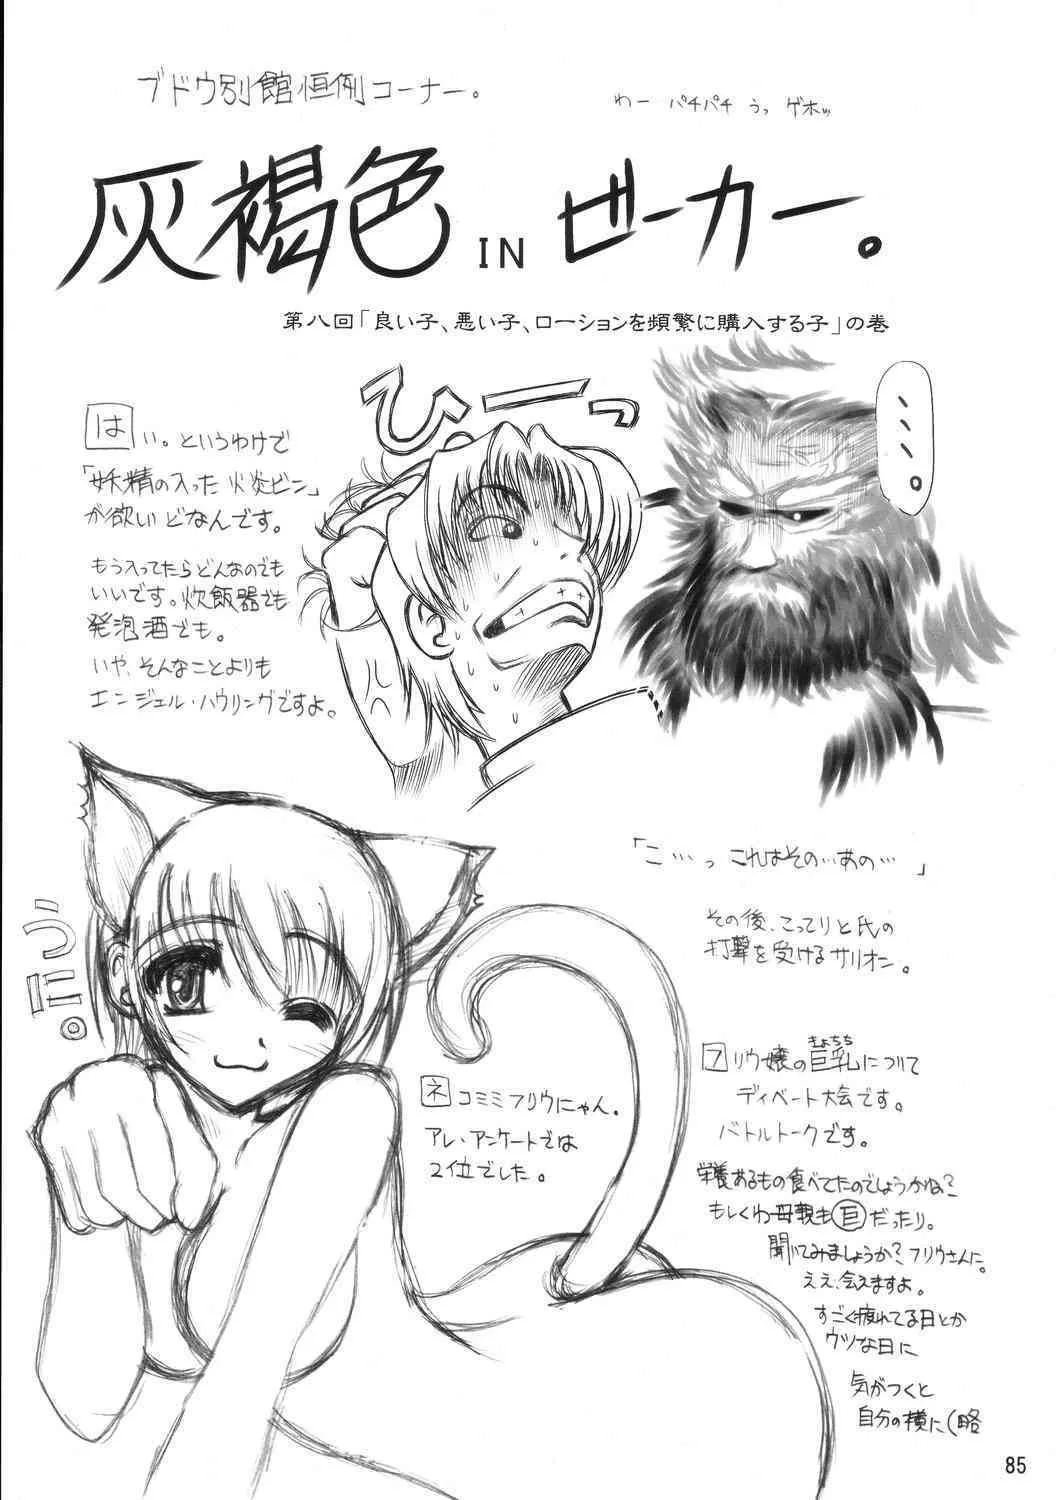 ブドウ別館恒例コーナー。
わー パチパチ うっ ゲホッ
灰褐色 IN ビーカー。
第八回「良い子、悪い子、ローションを頻繁に購入する子」の巻
ひーっ
・・・・。
はい。というわけで
「妖精の入った火炎ビン」
が欲いどなんです。
もう入ってたらどんなのでも
いいです。炊飯器でも
発泡酒でも。
いや、そんなことよりも
エンジェル・ハウリングですよ。
「こ…っ これはその…あの…」
その後、こってりと氏の
打撃を受けるサリオン。
ネコミミフリウにゃん。
アレ・アンケートでは
2位でした。
フリウ嬢の巨乳について
きょちち
ディベート大会です。
バトルトークです。
栄養あるもの食べてたのでしょうかね?
もしくわ母親も巨だったり。
聞いてみましょうか?フリウさんに。
ええ、会えますよ。
すごく疲れてる日とか
ウツな日に
気がつくと
自分の横に(略
85